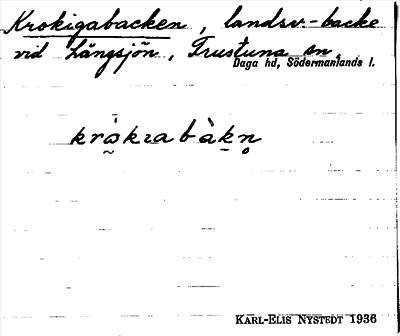 Krokigabacken, landsv.-backe
vid Långsjön, Trustuna sn,
Daga hd, Södermanlands l.
krò̰kɩabàkn̥
KARL-ELIS NYSTEDT 1936